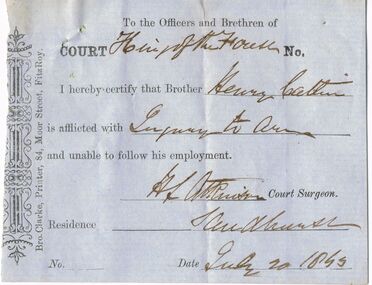 To the Officers and Brethren of
COURT King of the Forest No.
I hereby certify that Brother Henry Cattin
is afflicted with Injury to Arm
and unable to follow his employment.
H L Atkinson Court Surgeon.
Residence Sandhurst
No. Date July 20 1863
Bro. Clarke, Printer, 84, Moor Street, FitzRoy.